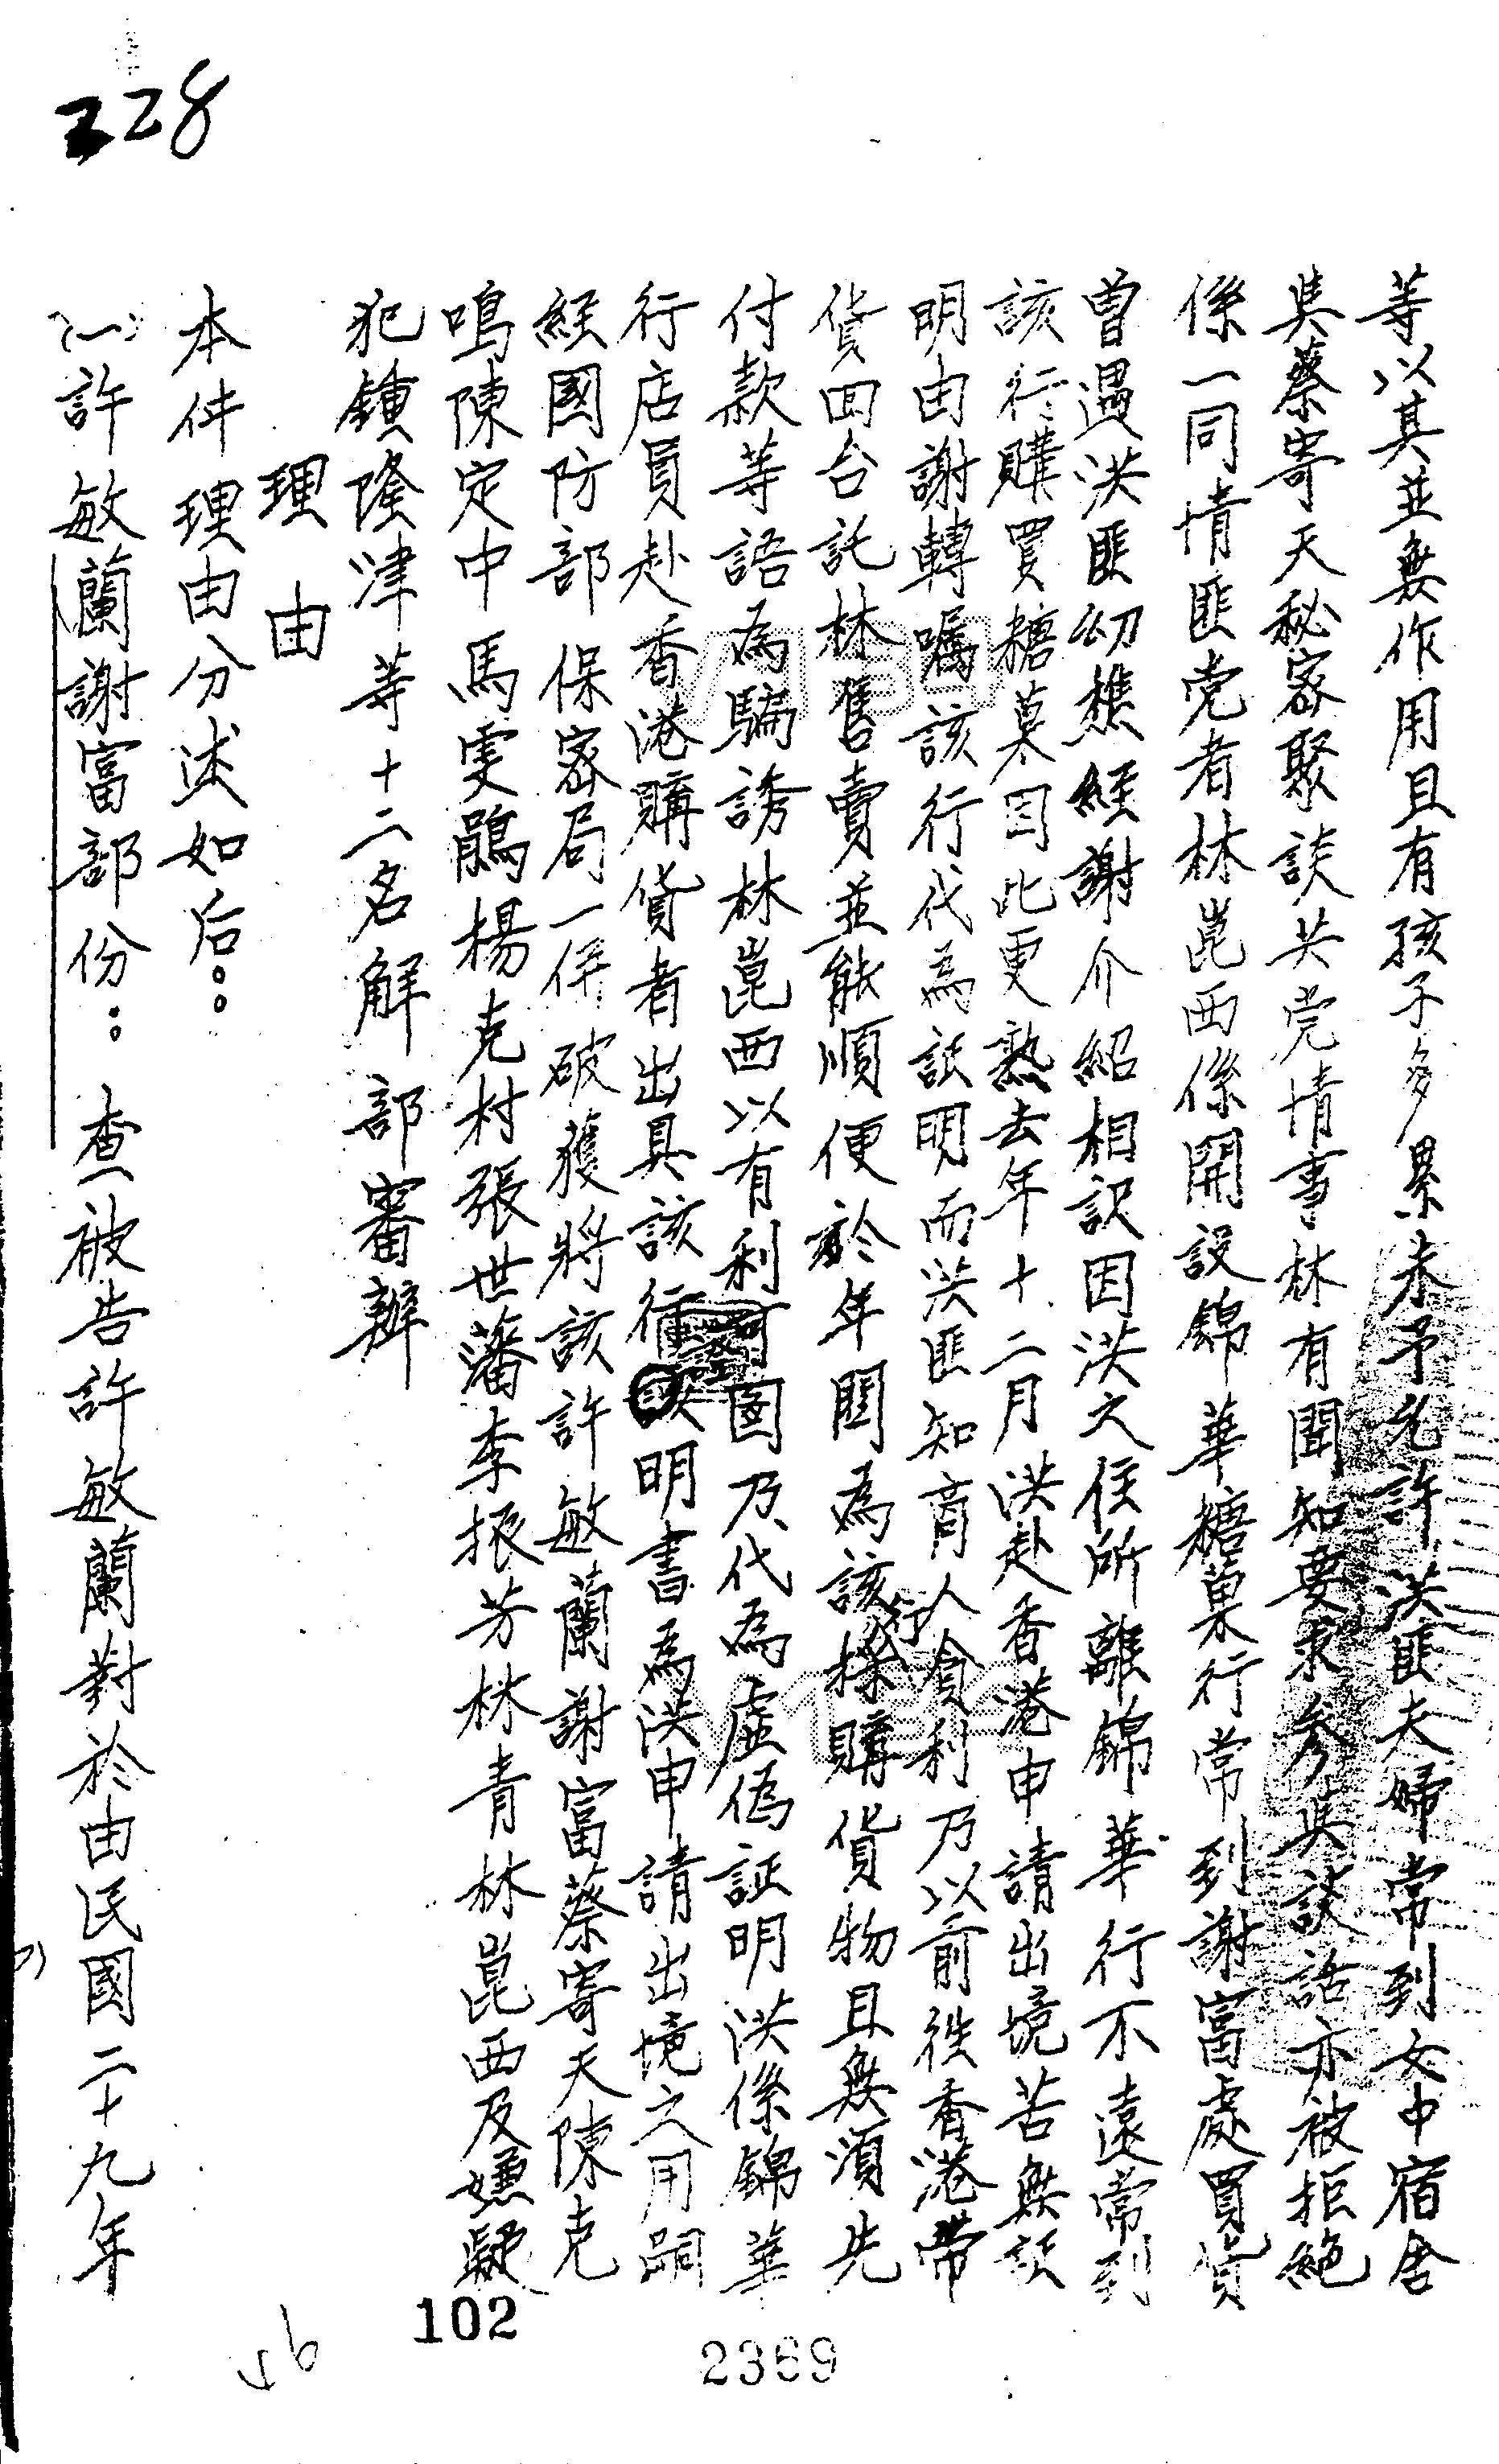 228
等以其並無作用且有孩子多累未予允許洪匪夫婦常到女中宿舍
與蔡寄天秘密聚談共党情事林有聞知要求參與談話亦被拒絕
係一同情匪党者林崑西係開設錦華糖菓行常到謝富處買貨
曾遇洪匪幼樵經謝介紹相識因洪之住所離錦華行不遠常到
該行購買糖菓因此更熟去年十二月洪赴香港申請出境苦無証
明由謝轉囑該行代為証明而洪匪知商人貪利乃以前往香港帶
貨回台託林售賣並能順便於年関為該行採購貨物且無須先
付款等語為騙誘林崑西以有利可图乃代為虛偽証明洪係錦華
行店員赴香港購貨者出具該行證明書為洪申請出境之用嗣
經國防部保密局一併破獲將該許敏蘭謝富蔡寄天陳克
鳴陳定中馬雯鵑楊克村張世藩李振芳林青林崑西及嫌疑
犯鍾隆津等十二名解部審辦
理由
本件理由分述如后：
(一)許敏蘭謝富部份：查被告許敏蘭對於由民國二十九年
102
2369